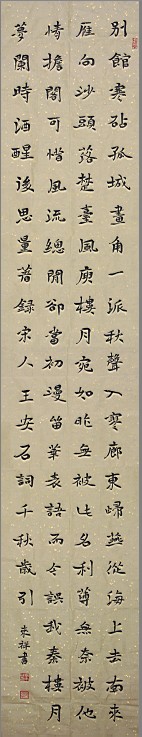 別館寒砧孤城畫角一派秋聲入寥廓東歸燕從海上去南來
雁向沙頭落楚臺風庾樓月宛如昨無被些名利縛無奈被他
情擔閣可惜風流總閒卻當初漫留華表語而今誤我秦樓月
夢闌時酒醒後思量著錄宋人王安石詞千秋歲引
祥書